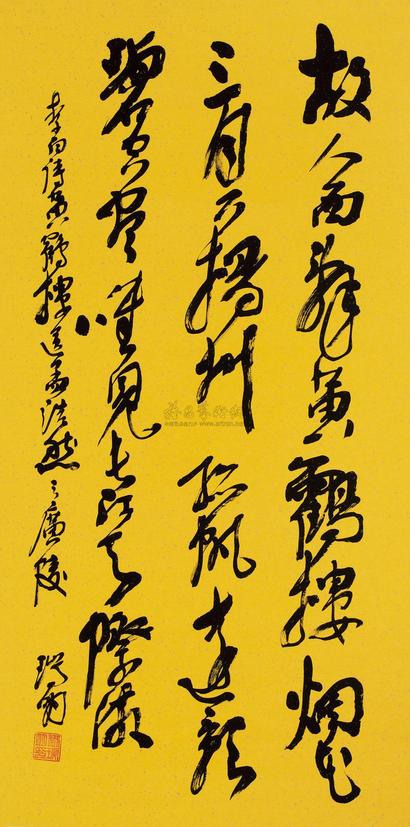 故人西辭黃鶴樓烟花
三月下揚州孤帆遠影
碧空盡唯見長江天際流
李白詩黃鶴樓送孟浩然之廣陵